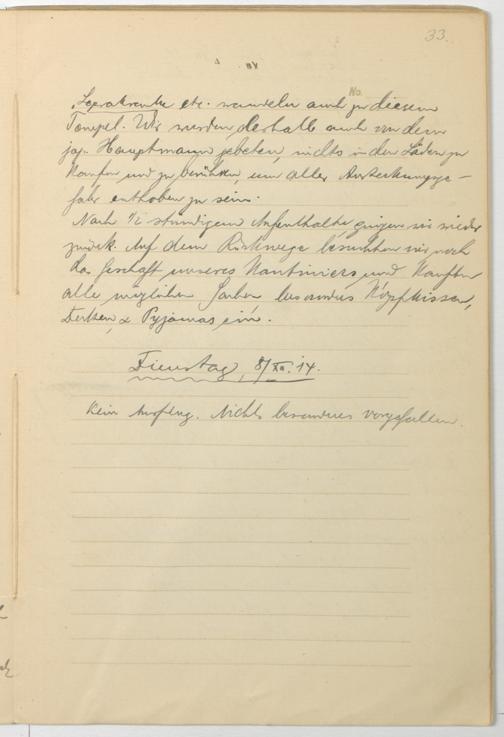 33.
Leprakranke etc. wandeln auch zu diesem
Tempel. Wir wurden deshalb auch von dem
jap. Hauptmann gebeten, nichts in den Läden zu
kaufen und zu berühren, um aller Ansteckungsge-
fahr enthoben zu sein.
Nach ½ stündigem Aufenthalte, gingen wir wieder
zurück. Auf dem Rückwege besuchten wir noch
das Geschäft unseres Kantiniers und kauften
alle möglichen Sachen besonders Kopfkissen,
Decken, & Pyjamas ein.
Dienstag, 8/XII. 14.
Kein Ausflug. Nichts besonderes vorgefallen.